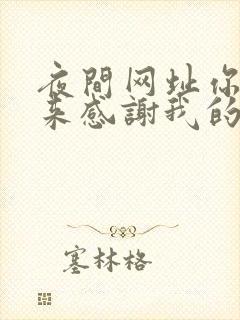 夜間网址你
来感謝我的
塞林格